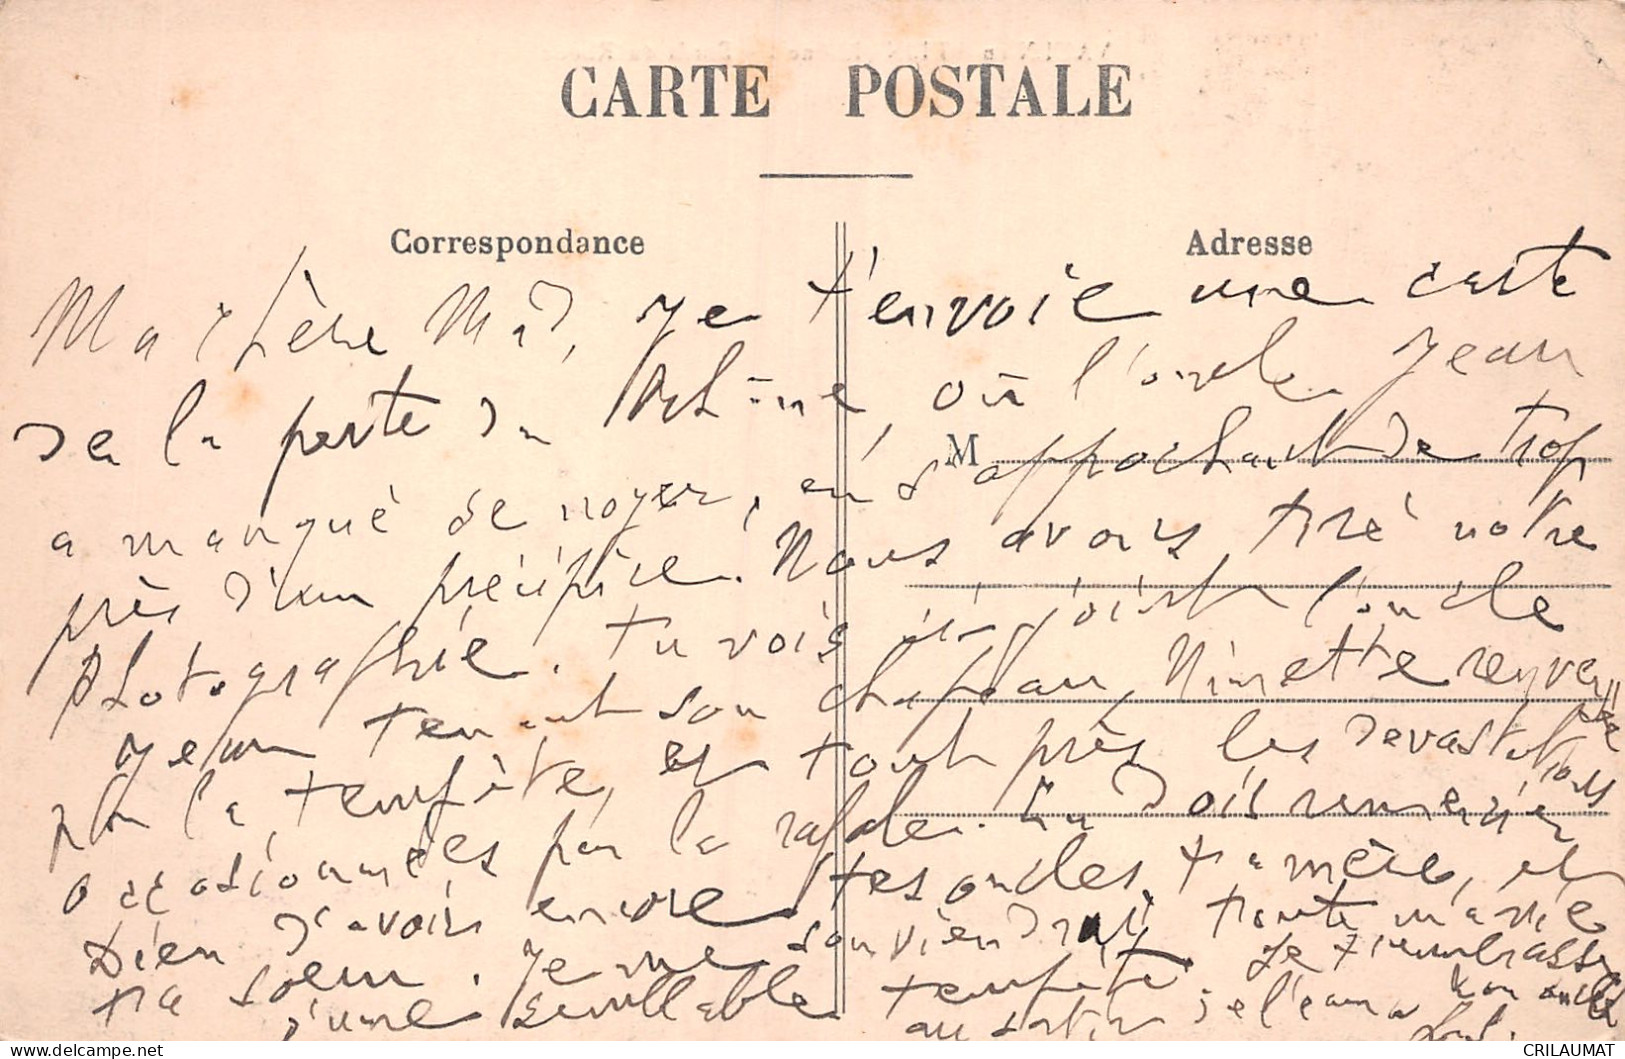 CARTE POSTALE
Correspondance
Adresse
Ma chère Mad, je t'envoie une carte
de la perte du Rhône, où l'oncle Jean
M
a manqué de noyer, en s'approchant de trop
près d'un précipice. Nous avons tiré notre
photographie. Tu vois ici l'oncle
Jean tenant son chapeau, Ninette renversée
par la tempête, et tout près les devastations
occasionnées par la rafale. Tu dois remercier
bien d'avoir encore tes oncles, ta mère, et
ta soeur. Je me souviendrai toute ma vie
d'une semblable tempête. Je t'embrasse
au sortir de l'eau. Ton oncle
© delcampe.net
CRILAUMAT